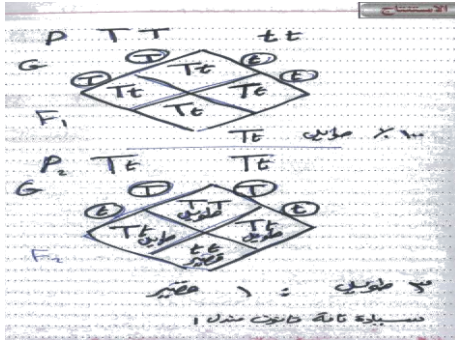 الاستنتاج
P TT tt
G T T t t
Tt
Tt Tt
Tt
F₁ Tt ١٠٠٪ طويل
P₂ Tt Tt
G t T T t
TT طويل
Tt طويل Tt طويل
tt قصير
F₂
٣ طويل : ١ قصير
سيادة تامة قانون مندل ١